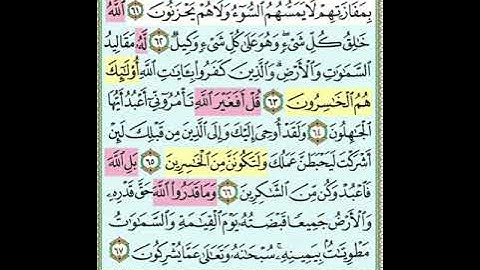 بِمَفَازَتِهِمْ لَا يَمَسُّهُمُ ٱلسُّوٓءُ وَلَا هُمْ يَحْزَنُونَ ٦١ ٱللَّهُ
خَٰلِقُ كُلِّ شَىْءٍ وَهُوَ عَلَىٰ كُلِّ شَىْءٍ وَكِيلٌ ٦٢ لَّهُۥ مَقَالِيدُ
ٱلسَّمَٰوَٰتِ وَٱلْأَرْضِ وَٱلَّذِينَ كَفَرُوا۟ بِـَٔايَٰتِ ٱللَّهِ أُو۟لَٰٓئِكَ
هُمُ ٱلْخَٰسِرُونَ ٦٣ قُلْ أَفَغَيْرَ ٱللَّهِ تَأْمُرُوٓنِّىٓ أَعْبُدُ أَيُّهَا
ٱلْجَٰهِلُونَ ٦٤ وَلَقَدْ أُوحِىَ إِلَيْكَ وَإِلَى ٱلَّذِينَ مِن قَبْلِكَ لَئِنْ
أَشْرَكْتَ لَيَحْبَطَنَّ عَمَلُكَ وَلَتَكُونَنَّ مِنَ ٱلْخَٰسِرِينَ ٦٥ بَلِ ٱللَّهَ
فَٱعْبُدْ وَكُن مِّنَ ٱلشَّٰكِرِينَ ٦٦ وَمَا قَدَرُوا۟ ٱللَّهَ حَقَّ قَدْرِهِۦ
وَٱلْأَرْضُ جَمِيعًا قَبْضَتُهُۥ يَوْمَ ٱلْقِيَٰمَةِ وَٱلسَّمَٰوَٰتُ
مَطْوِيَّٰتٌۢ بِيَمِينِهِۦ سُبْحَٰنَهُۥ وَتَعَٰلَىٰ عَمَّا يُشْرِكُونَ ٦٧